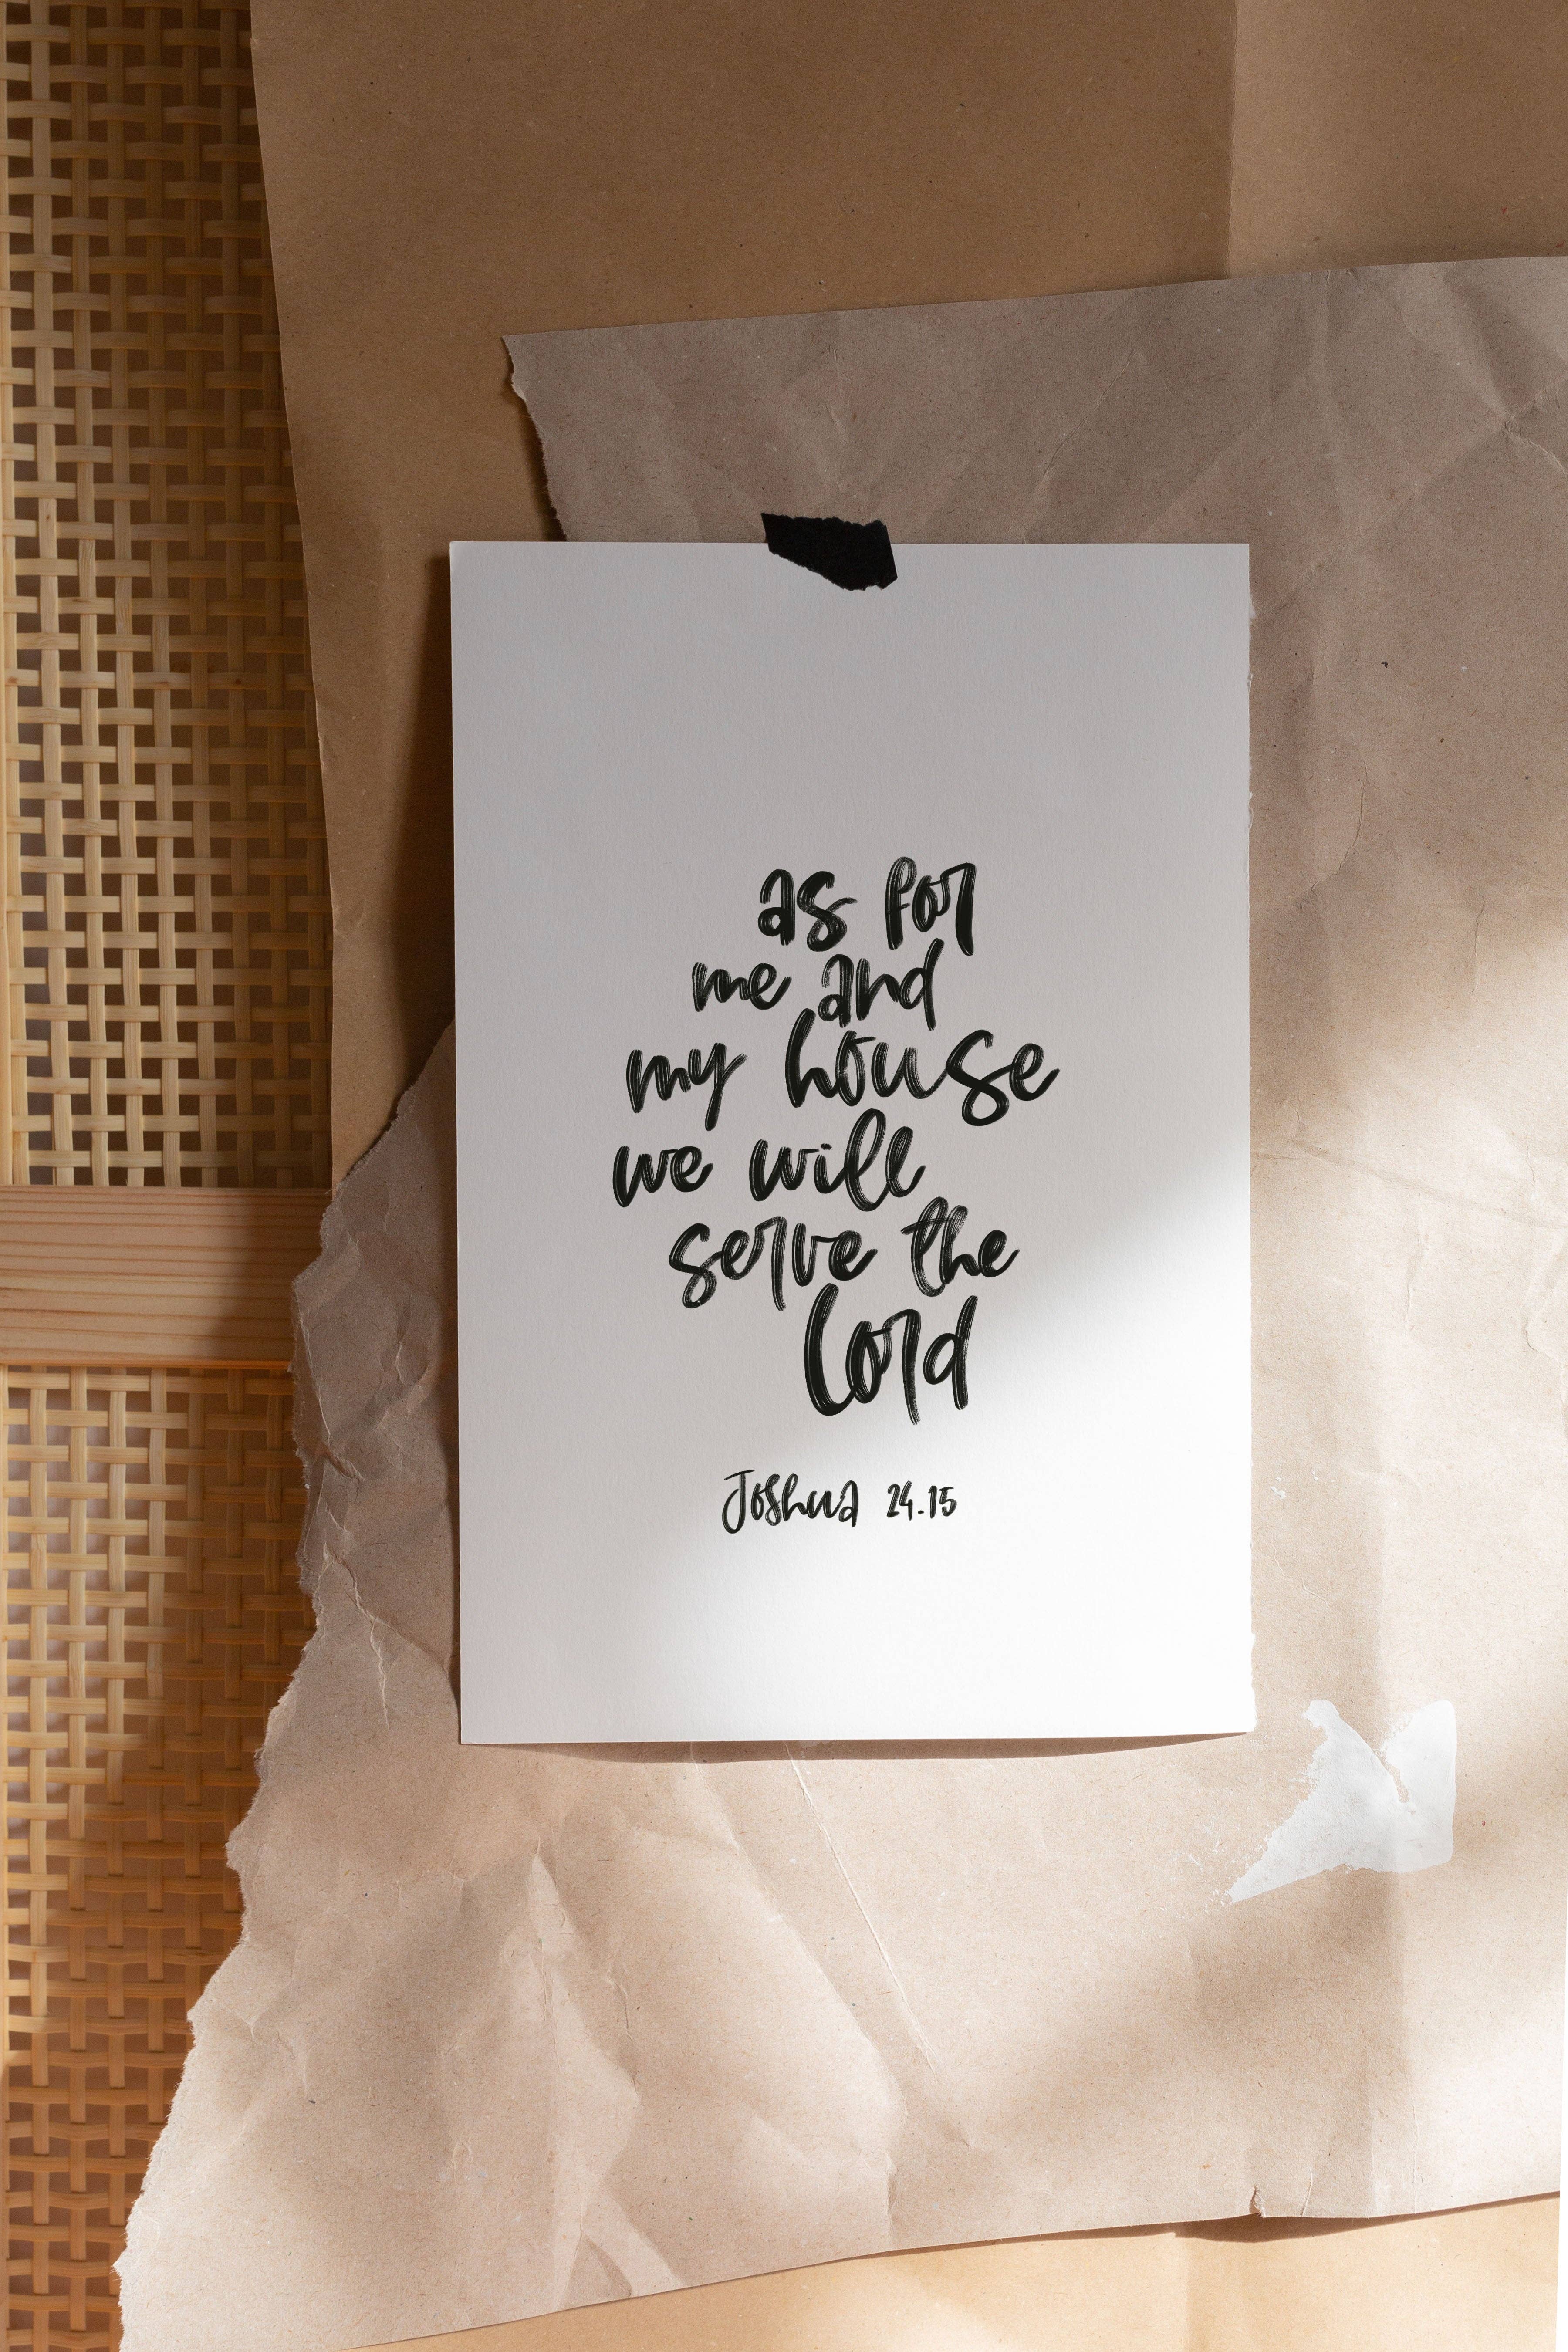 as for
me and
my house
we will
serve the
Lord
Joshua 24.15